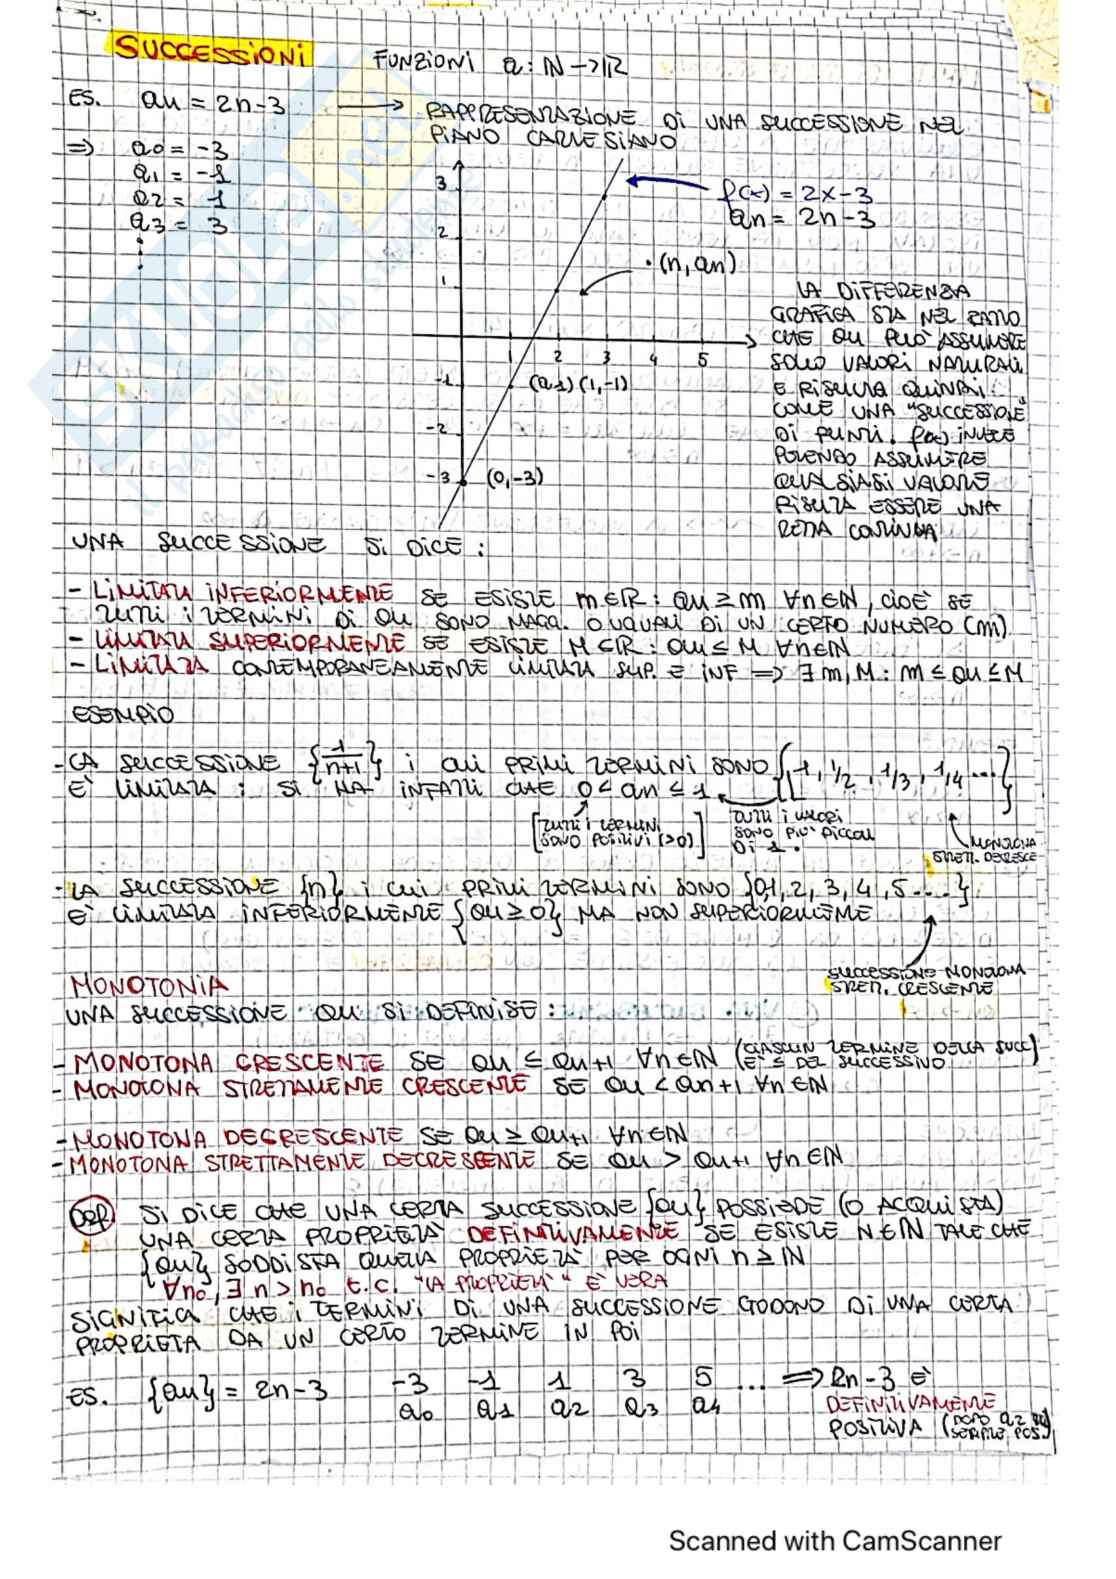 SUCCESSIONI FUNZIONI a : ℕ → ℝ
ES. an = 2n-3 → RAPPRESENTAZIONE DI UNA SUCCESSIONE NEL
PIANO CARTESIANO
⇒ a0 = -3
a1 = -1
a2 = 1
a3 = 3
⋮
3
2
1
-1
-2
-3
1 2 3 4 5
f(x) = 2x-3
an = 2n-3
• (n, an)
(a,1) (1,-1)
(0,-3)
LA DIFFERENZA
GRAFICA STA NEL FATTO
CHE an PUÒ ASSUMERE
SOLO VALORI NATURALI
E RISULTA QUINDI
COME UNA "SUCCESSIONE"
DI PUNTI. f(x) INVECE
POTENDO ASSUMERE
QUALSIASI VALORE
RISULTA ESSERE UNA
RETTA CONTINUA
UNA SUCCESSIONE SI DICE :
- LIMITATA INFERIORMENTE SE ESISTE m∈ℝ : an ≥ m ∀n∈ℕ, CIOÈ SE
TUTTI I TERMINI DI an SONO MAGG. O UGUALI DI UN CERTO NUMERO (m)
- LIMITATA SUPERIORMENTE SE ESISTE M∈ℝ : an ≤ M ∀n∈ℕ
- LIMITATA CONTEMPORANEAMENTE LIMITATA SUP. E INF ⇒ ∃ m, M : m ≤ an ≤ M
ESEMPIO
- LA SUCCESSIONE {1/n+1} i CUI PRIMI TERMINI SONO {1, 1/2, 1/3, 1/4 ...}
È LIMITATA : SI HA INFATTI CHE 0 < an ≤ 1
[TUTTI I TERMINI
SONO POSITIVI (>0)]
TUTTI I VALORI
SONO PIÙ PICCOLI
DI 1.
MONOTONA
STRETT. DECRESCE
- LA SUCCESSIONE {n} i CUI PRIMI TERMINI SONO {0,1, 2, 3, 4, 5 ....}
È LIMITATA INFERIORMENTE {an ≥ 0} MA NON SUPERIORMENTE
SUCCESSIONE MONOTONA
STRETT. CRESCENTE
MONOTONIA
UNA SUCCESSIONE an SI DEFINISE :
- MONOTONA CRESCENTE SE an ≤ an+1 ∀n∈ℕ (CIASCUN TERMINE DELLA SUCC)
È ≤ DEL SUCCESSIVO
- MONOTONA STRETTAMENTE CRESCENTE SE an < an+1 ∀n∈ℕ
- MONOTONA DECRESCENTE SE an ≥ an+1 ∀n∈ℕ
- MONOTONA STRETTAMENTE DECRESCENTE SE an > an+1 ∀n∈ℕ
DEF SI DICE CHE UNA CERTA SUCCESSIONE {an} POSSIEDE (O ACQUISTA)
UNA CERTA PROPRIETÀ DEFINITIVAMENTE SE ESISTE N∈ℕ TALE CHE
{an} SODDISFA QUELLA PROPRIETÀ PER OGNI n ≥ N
∀n0, ∃ n > n0 t.c. "LA PROPRIETÀ" È VERA
SIGNIFICA CHE I TERMINI DI UNA SUCCESSIONE GODONO DI UNA CERTA
PROPRIETÀ DA UN CERTO TERMINE IN POI
ES. {an} = 2n-3 -3 -1 1 3 5 ... ⇒ 2n-3 È
a0 a1 a2 a3 a4 DEFINITIVAMENTE
POSITIVA (DOPO a2
SEMPRE POS)
Scanned with CamScanner